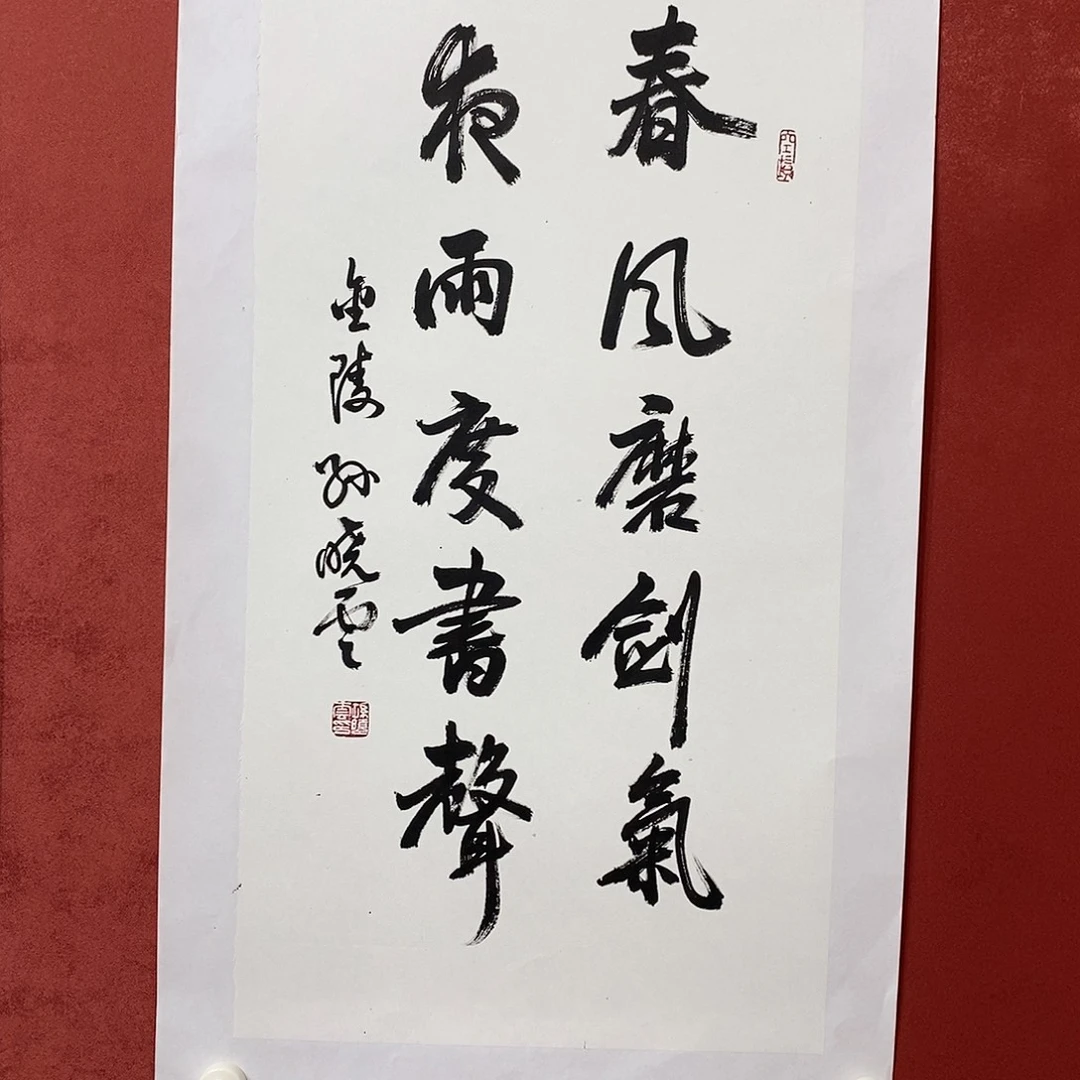 春风磨劍氣
夜雨度書聲
金陵孙晓云